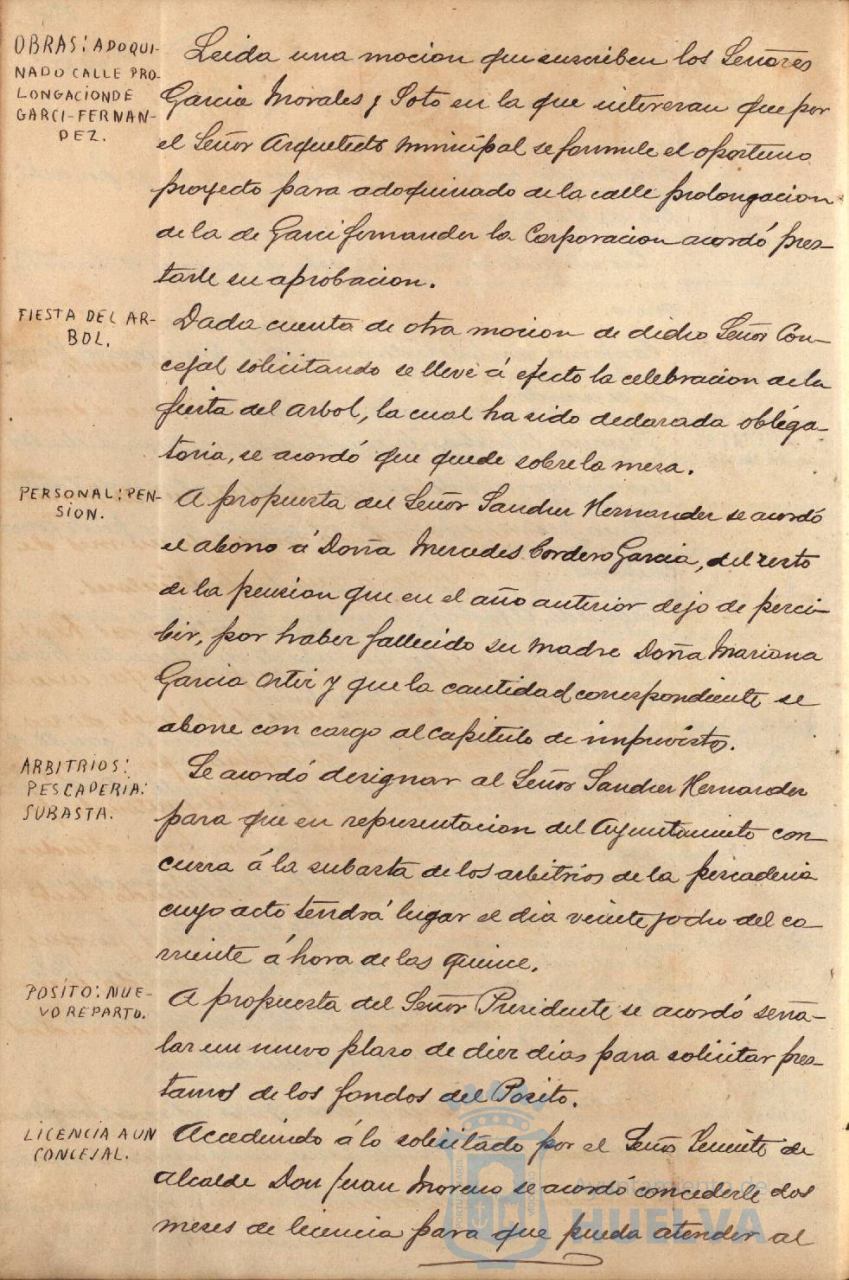 OBRAS: ADOQUI-
NADO CALLE PRO-
LONGACION DE
GARCI-FERNAN-
DEZ.
Leida una mocion que suscriben los Señores
Garcia Morales y Soto en la que interesan que por
el Señor Arquitecto municipal se formule el oportuno
proyecto para adoquinado de la calle prolongacion
de la de Garci fernandez la Corporacion acordó pres-
tarle su aprobacion.
FIESTA DEL AR-
BOL.
Dada cuenta de otra mocion de dicho Señor Con-
cejal solicitando se lleve á efecto la celebracion de la
fiesta del arbol, la cual ha sido declarada obliga-
toria, se acordó que quede sobre la mesa.
PERSONAL: PEN-
SION.
A propuesta del Señor Sanchez Hernandez se acordó
el abono á Doña Mercedes Cordero Garcia, del resto
de la pension que en el año anterior dejo de perci-
bir, por haber fallecido su madre Doña Mariana
Garcia Ortiz y que la cantidad correspondiente se
abone con cargo al capitulo de imprevistos.
ARBITRIOS:
PESCADERIA:
SUBASTA.
Se acordó designar al Señor Sanchez Hernandez
para que en representacion del Ayuntamiento con-
curra á la subasta de los arbitrios de la pescaderia
cuyo acto tendrá lugar el dia veinte y ocho del co-
rriente á hora de las quince.
POSITO: NUE-
VO REPARTO.
A propuesta del Señor Presidente se acordó seña-
lar un nuevo plazo de diez dias para solicitar pres-
tamos de los fondos del Posito.
LICENCIA A UN
CONCEJAL.
Accediendo á lo solicitado por el Señor Teniente de
alcalde Don Juan Moreno se acordó concederle dos
meses de licencia para que pueda atender al
Ayuntamiento de
HUELVA